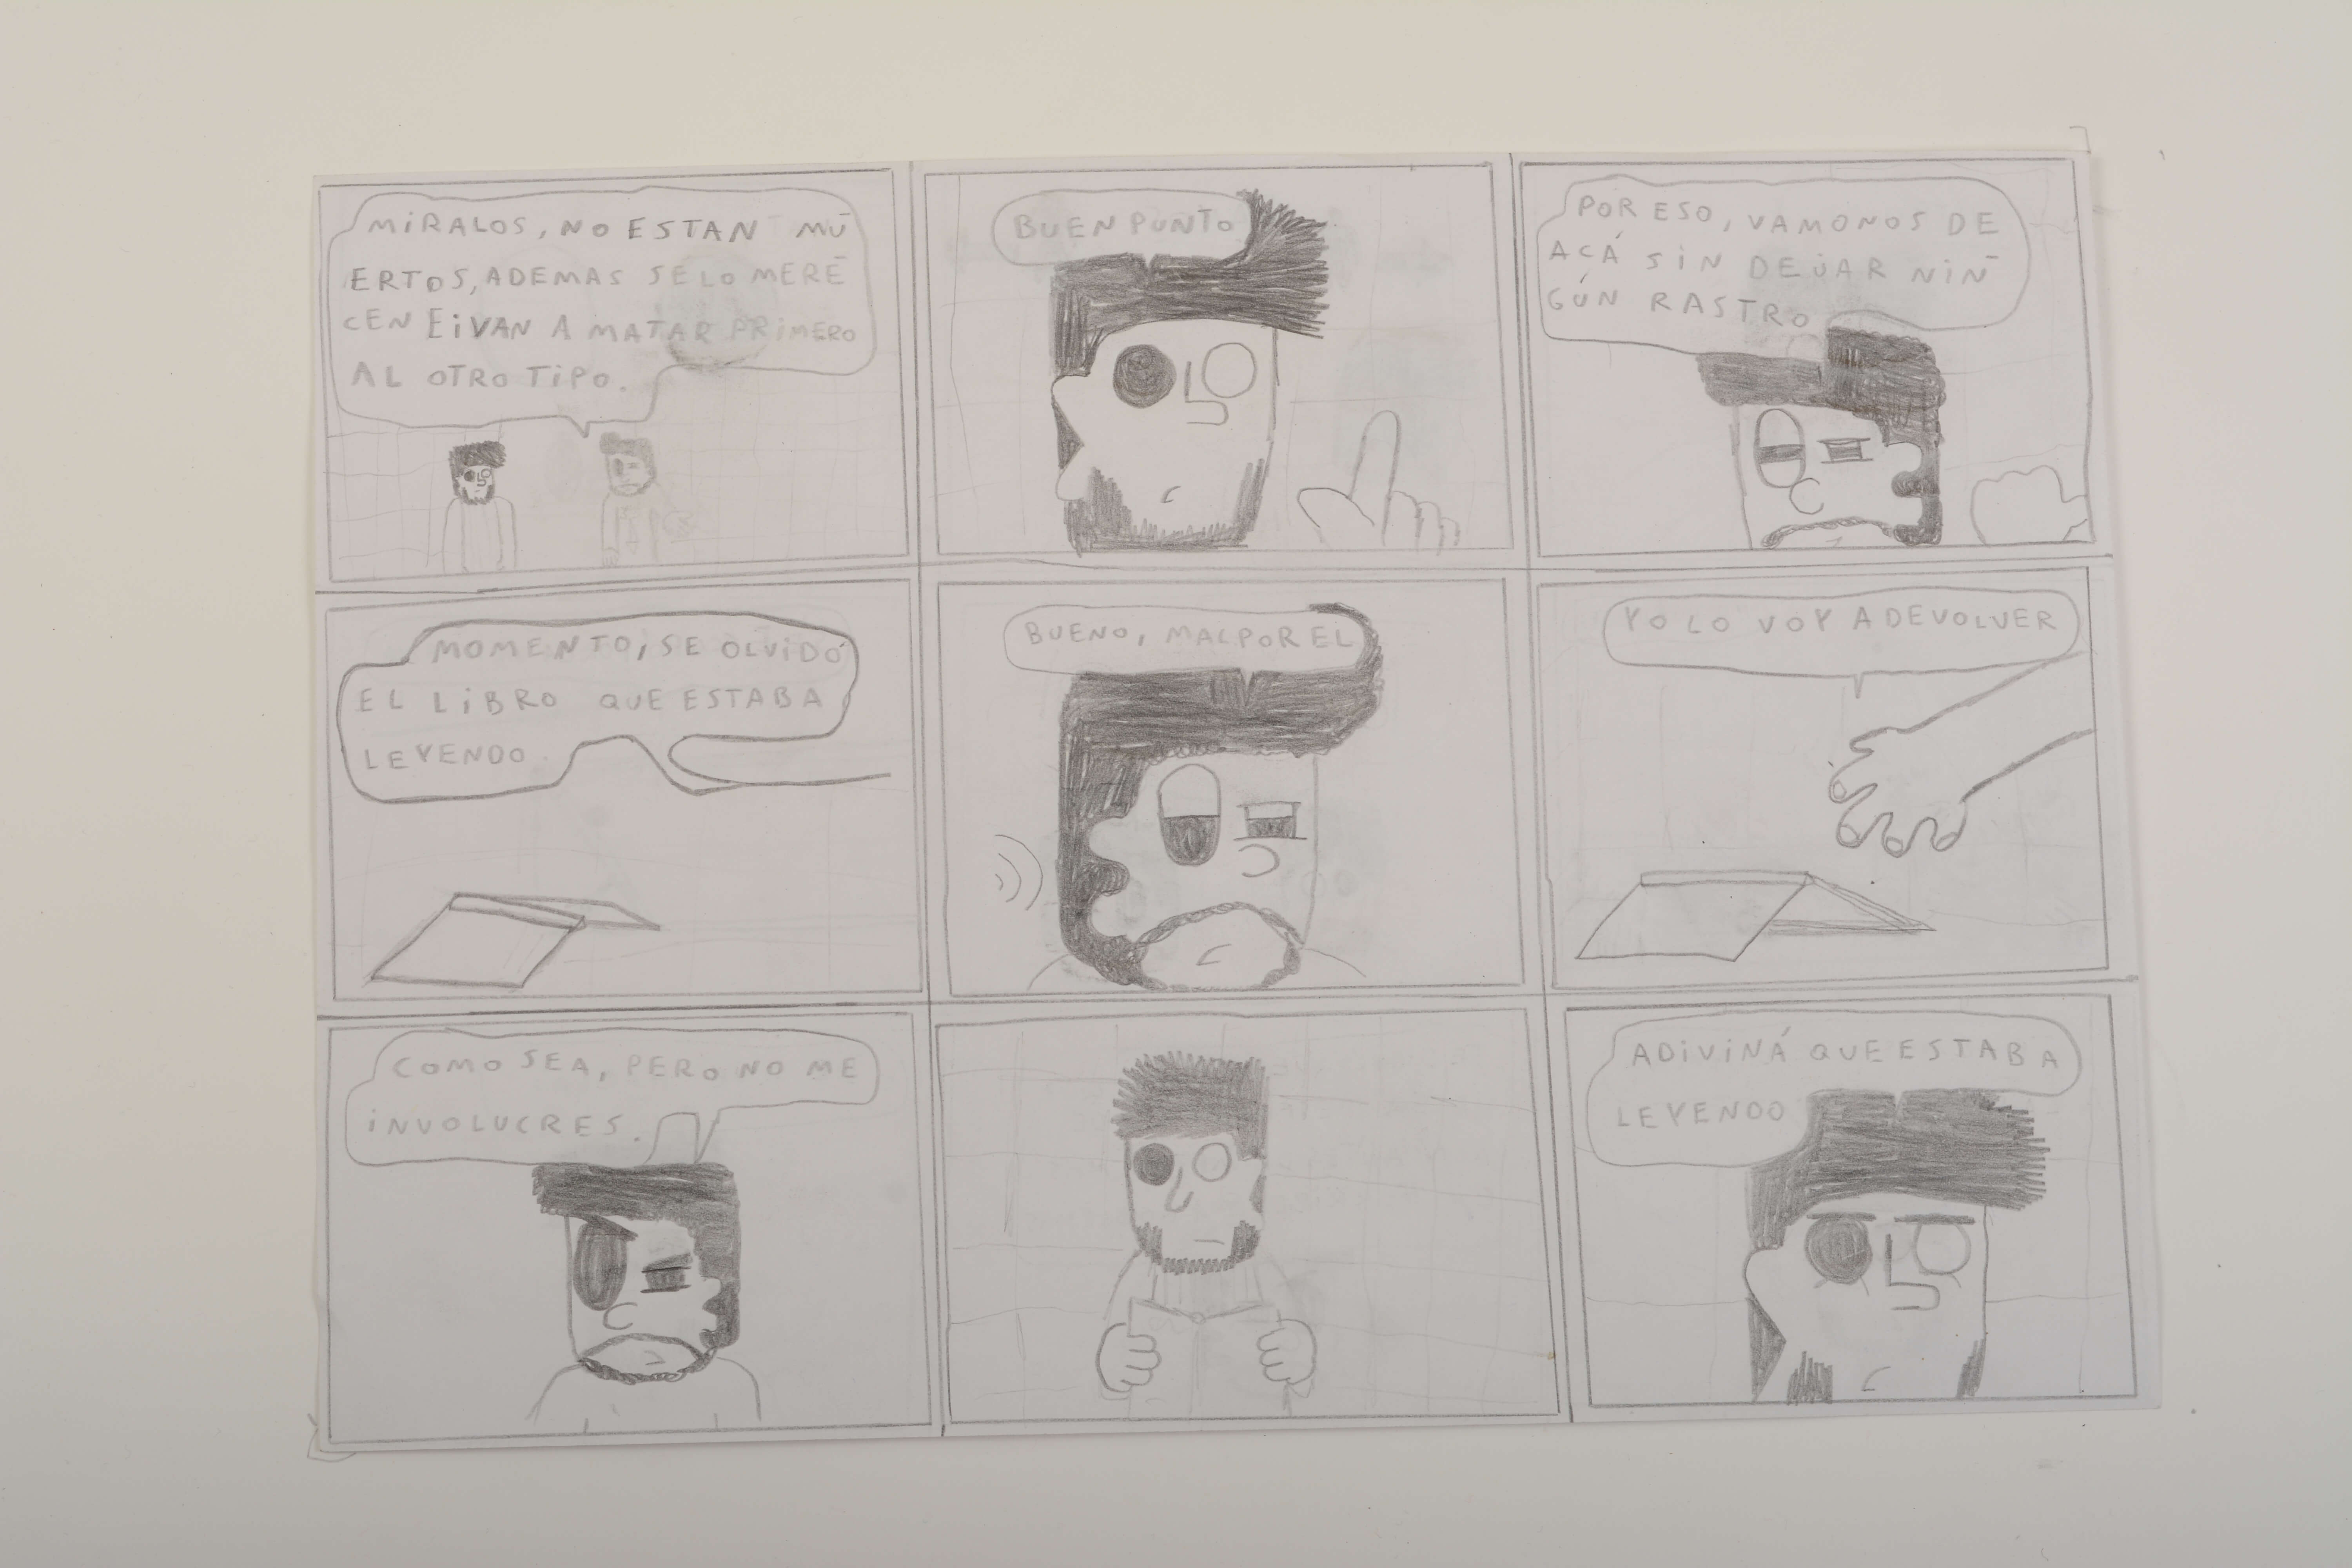 MiRALOS, NO ESTAN MU-
ERTOS, ADEMAS SE LO MERE-
CEN Ei VAN A MATAR PRiMERO
AL OTRO TiPO.
BUEN PUNTO
POR ESO, VAMONOS DE
ACÁ SiN DEJAR NiN-
GÚN RASTRO
MOMENTO, SE OLViDÓ
EL LiBRO QUE ESTABA
LEYENDO.
BUENO, MAL POR EL
YO LO VOY A DEVOLVER
COMO SEA, PERO NO ME
iNVOLUCRES.
ADiViNÁ QUE ESTABA
LEYENDO